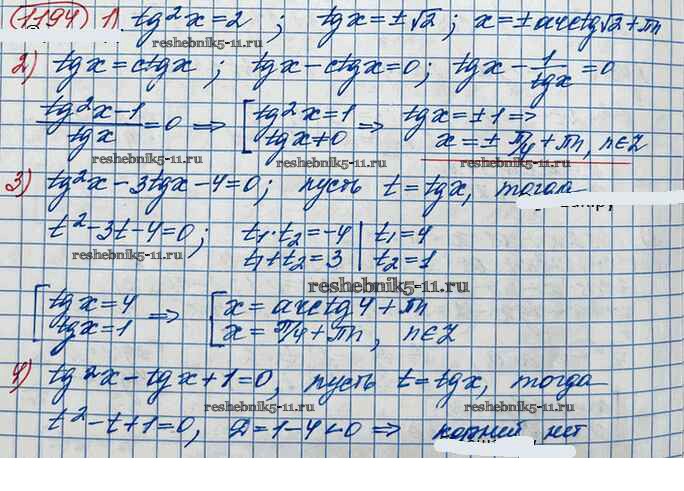 1194 1. tg²x = 2 ; tgx = ±√2 ; x = ±arctg√2 + πn
reshebnik5-11.ru
2) tgx = ctgx ; tgx - ctgx = 0 ; tgx - 1/tgx = 0
(tg²x - 1)/tgx = 0 => [ tg²x = 1 => tgx = ±1 =>
tgx ≠ 0 x = ± π/4 + πn, n∈Z
reshebnik5-11.ru reshebnik5-11.ru
3) tg²x - 3tgx - 4 = 0 ; пусть t = tgx, тогда
t² - 3t - 4 = 0 ; t₁·t₂ = -4 | t₁ = 4
t₁ + t₂ = 3 | t₂ = 1
reshebnik5-11.ru reshebnik5-11.ru
[ tgx = 4 => [ x = arctg4 + πn
tgx = 1 x = π/4 + πn, n∈Z
4) tg²x - tgx + 1 = 0, пусть t = tgx, тогда
reshebnik5-11.ru reshebnik5-11.ru
t² - t + 1 = 0, D = 1 - 4 < 0 => корней нет